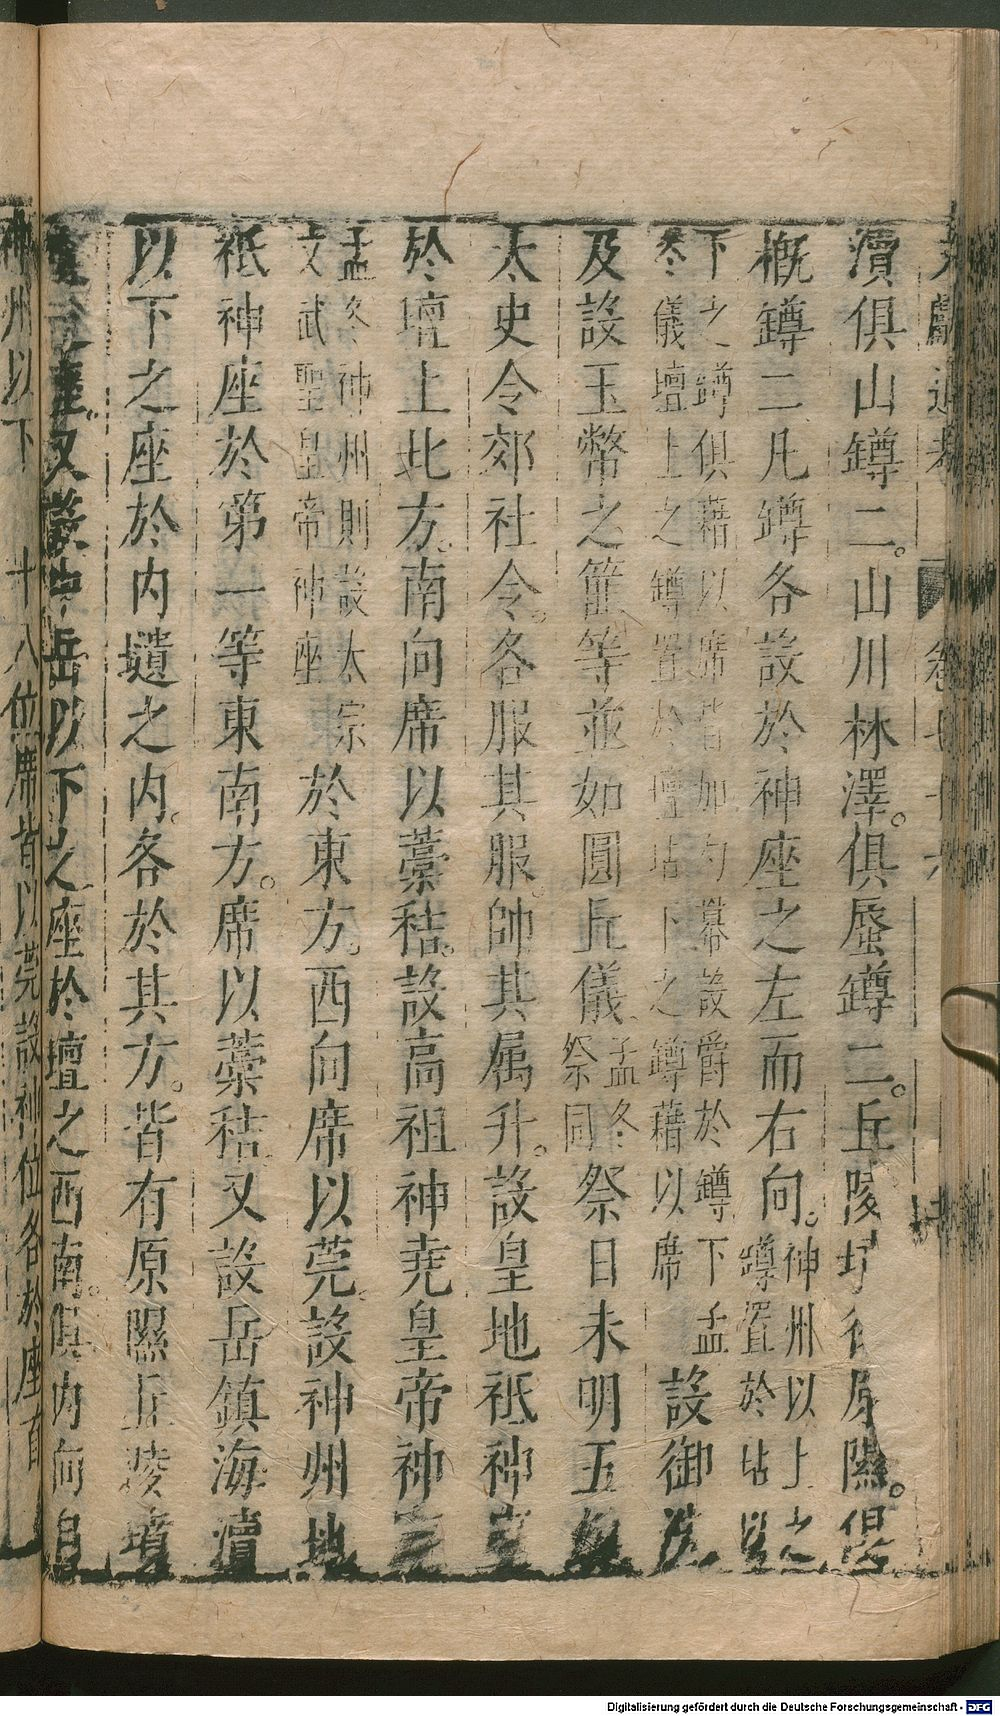 瀆俱山罇二。山川林澤。俱蜃罇二。丘陵墳衍原隰。俱
概罇二凡罇各設於神座之左而右向。神州以上之
罇置於坫以
下之罇俱藉以席皆加勺冪設爵於罇下孟
冬儀壇上之罇置於壇坫下之罇藉以席
設御洗
及設玉幣之篚等並如圓丘儀
孟冬
祭同
祭日未明五
太史令郊社令。各服其服。帥其屬升。設皇地祇神
於壇上北方。南向席以藁秸。設高祖神堯皇帝神
孟冬神州則設太宗
文武聖皇帝神座
於東方。西向席以莞。設神州地
祇神座於第一等東南方。席以藁秸又設岳鎮海瀆
以下之座於内壝之内。各於其方。皆有原隰丘陵墳
又設中岳以下之座於壇之西南。俱内向自
神州以下 十八位席皆以莞設神位各於座首
卷
Digitalisierung gefördert durch die Deutsche Forschungsgemeinschaft - DFG